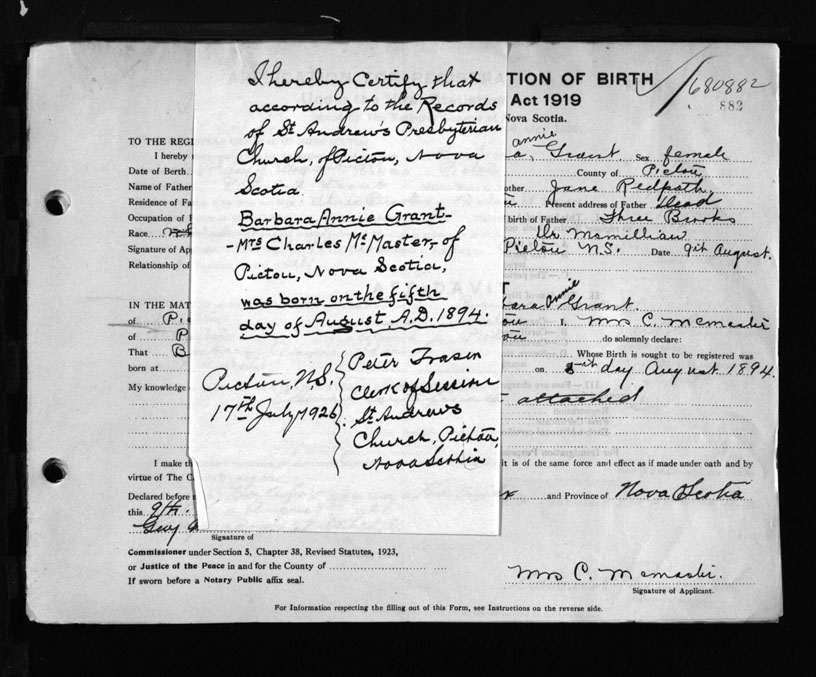 I hereby Certify that
according to the Records
of St Andrew's Presbyterian
Church, of Pictou, Nova
Scotia.
Barbara Annie Grant-
-Mrs Charles McMaster, of
Pictou, Nova Scotia,
was born on the fifth
day of August, A.D. 1894.
Pictou, N.S.
17th July 1926
Peter Fraser
Clerk of Session
St Andrews
Church, Pictou,
Nova Scotia
TION OF BIRTH
680882
Act 1919
882
Nova Scotia.
TO THE REGI
annie
I hereby
a. Grant Sex female
Date of Birth
County of Pictou
Name of Father
other Jane Redpath
Residence of Fa
Present address of Father Dead
Occupation of F
birth of Father Three Brooks
Race
Dr McMillian
Signature of Ap
Pictou N.S. Date 9th August.
Relationship of
IN THE MAT
bara Annie Grant.
of Pi
I, Mrs C. McMaster
of P
do solemnly declare:
That B
Whose Birth is sought to be registered was
born at
on 5th day August 1894.
My knowledge
attached
I make th
it is of the same force and effect as if made under oath and by
virtue of The C
Declared before
and Province of Nova Scotia
this 9th.
Signature of
Commissioner under Section 5, Chapter 38, Revised Statutes, 1923,
or Justice of the Peace in and for the County of
If sworn before a Notary Public affix seal.
Mrs C. McMaster.
Signature of Applicant.
For Information respecting the filling out of this Form, see Instructions on the reverse side.